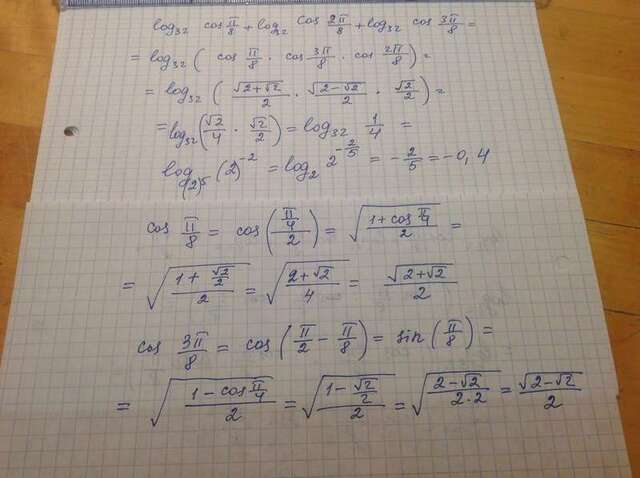 log₃₂ cos π/8 + log₃₂ cos 2π/8 + log₃₂ cos 3π/8 =
= log₃₂ ( cos π/8 · cos 3π/8 · cos 2π/8 ) =
= log₃₂ ( √(2+√2)/2 · √(2-√2)/2 · √2/2 ) =
= log₃₂ ( √2/4 · √2/2 ) = log₃₂ 1/4 =
log₍₂₎⁵ (2)⁻² = log₂ 2^(-2/5) = -2/5 = -0,4
cos π/8 = cos ( (π/4)/2 ) = √((1+cos π/4)/2) =
= √((1+√2/2)/2) = √((2+√2)/4) = √(2+√2)/2
cos 3π/8 = cos ( π/2 - π/8 ) = sin ( π/8 ) =
= √((1-cos π/4)/2) = √((1-√2/2)/2) = √((2-√2)/(2·2)) = √(2-√2)/2